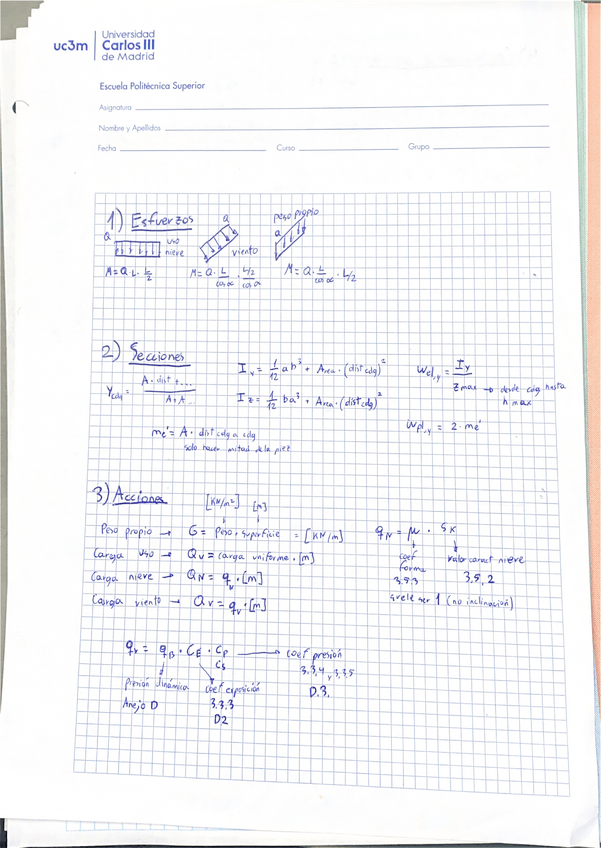 uc3m
Universidad
Carlos III
de Madrid
Escuela Politécnica Superior
Asignatura
Nombre y Apellidos
Fecha Curso Grupo
1) Esfuerzos
Q uso nieve
Q viento
peso propio Q
M = Q · L · L/2
M = Q · L/cos α · L/2/cos α
M = Q · L/cos α · L/2
2) Secciones
Ycdg = A · dist + .../A + A...
Iy = 1/12 ab³ + Area · (dist cdg)²
Iz = 1/12 ba³ + Area · (dist cdg)²
Wel,y = Iy/Zmax → desde cdg hasta h max
me' = A · dist cdg a cdg
solo hacer mitad de la piez
Wpl,y = 2 · me'
3) Acciones
[KN/m²] [m]
Peso propio → G = Peso · superficie = [KN/m]
Carga uso → Qv = carga uniforme · [m]
Carga nieve → QN = qN · [m]
Carga viento → Qv = qv · [m]
qN = μ · SK
coef forma 3.5.3
valor caract nieve 3.5.2
suele ser 1 (no inclinación)
qv = qB · CE · Cp → coef presión
Cs
3.3.4 y 3.3.5
D.3.
presión dinámica
Anejo D
coef exposición
3.3.3
D2